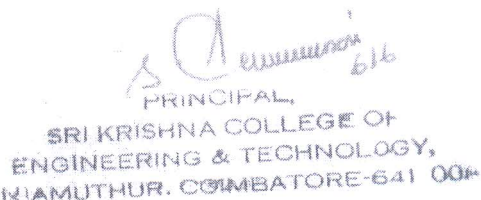 6/6
PRINCIPAL,
SRI KRISHNA COLLEGE OF
ENGINEERING & TECHNOLOGY,
COIMBATORE-641 00